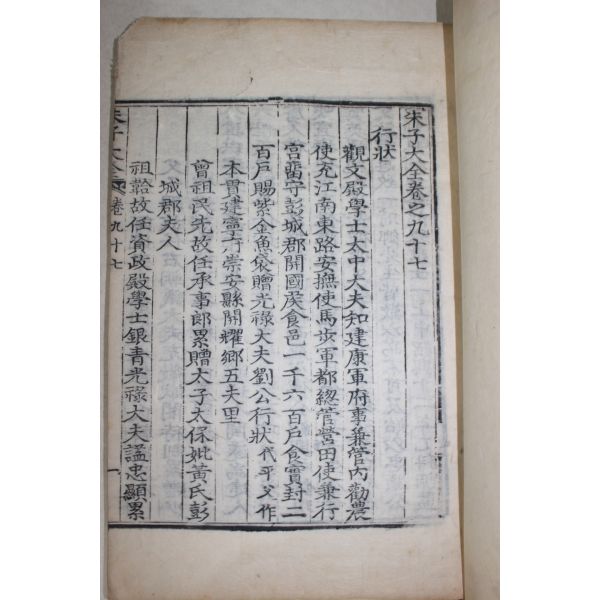 朱子大全卷之九十七
行狀
觀文殿學士太中大夫知建康軍府事兼管內勸農
使充江南東路安撫使馬步軍都總管營田使兼行
宮留守彭城郡開國矦食邑一千六百戶食實封二
百戶賜紫金魚袋贈光祿大夫劉公行狀代平父作
本貫建寧府崇安縣開耀鄉五夫里
曾祖民先故任承事郎累贈太子太保妣黃氏彭
城郡夫人
祖韐故任資政殿學士銀青光祿大夫謚忠顯累
朱子大全 卷九十七 一